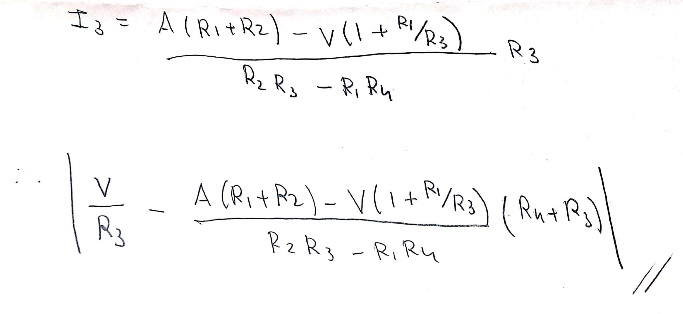 I3 = A(R1+R2) - V(1 + R1/R3) / R2 R3 - R1 R4 R3
∴ | V/R3 - A(R1+R2) - V(1 + R1/R3) / R2 R3 - R1 R4 (R4+R3) | //